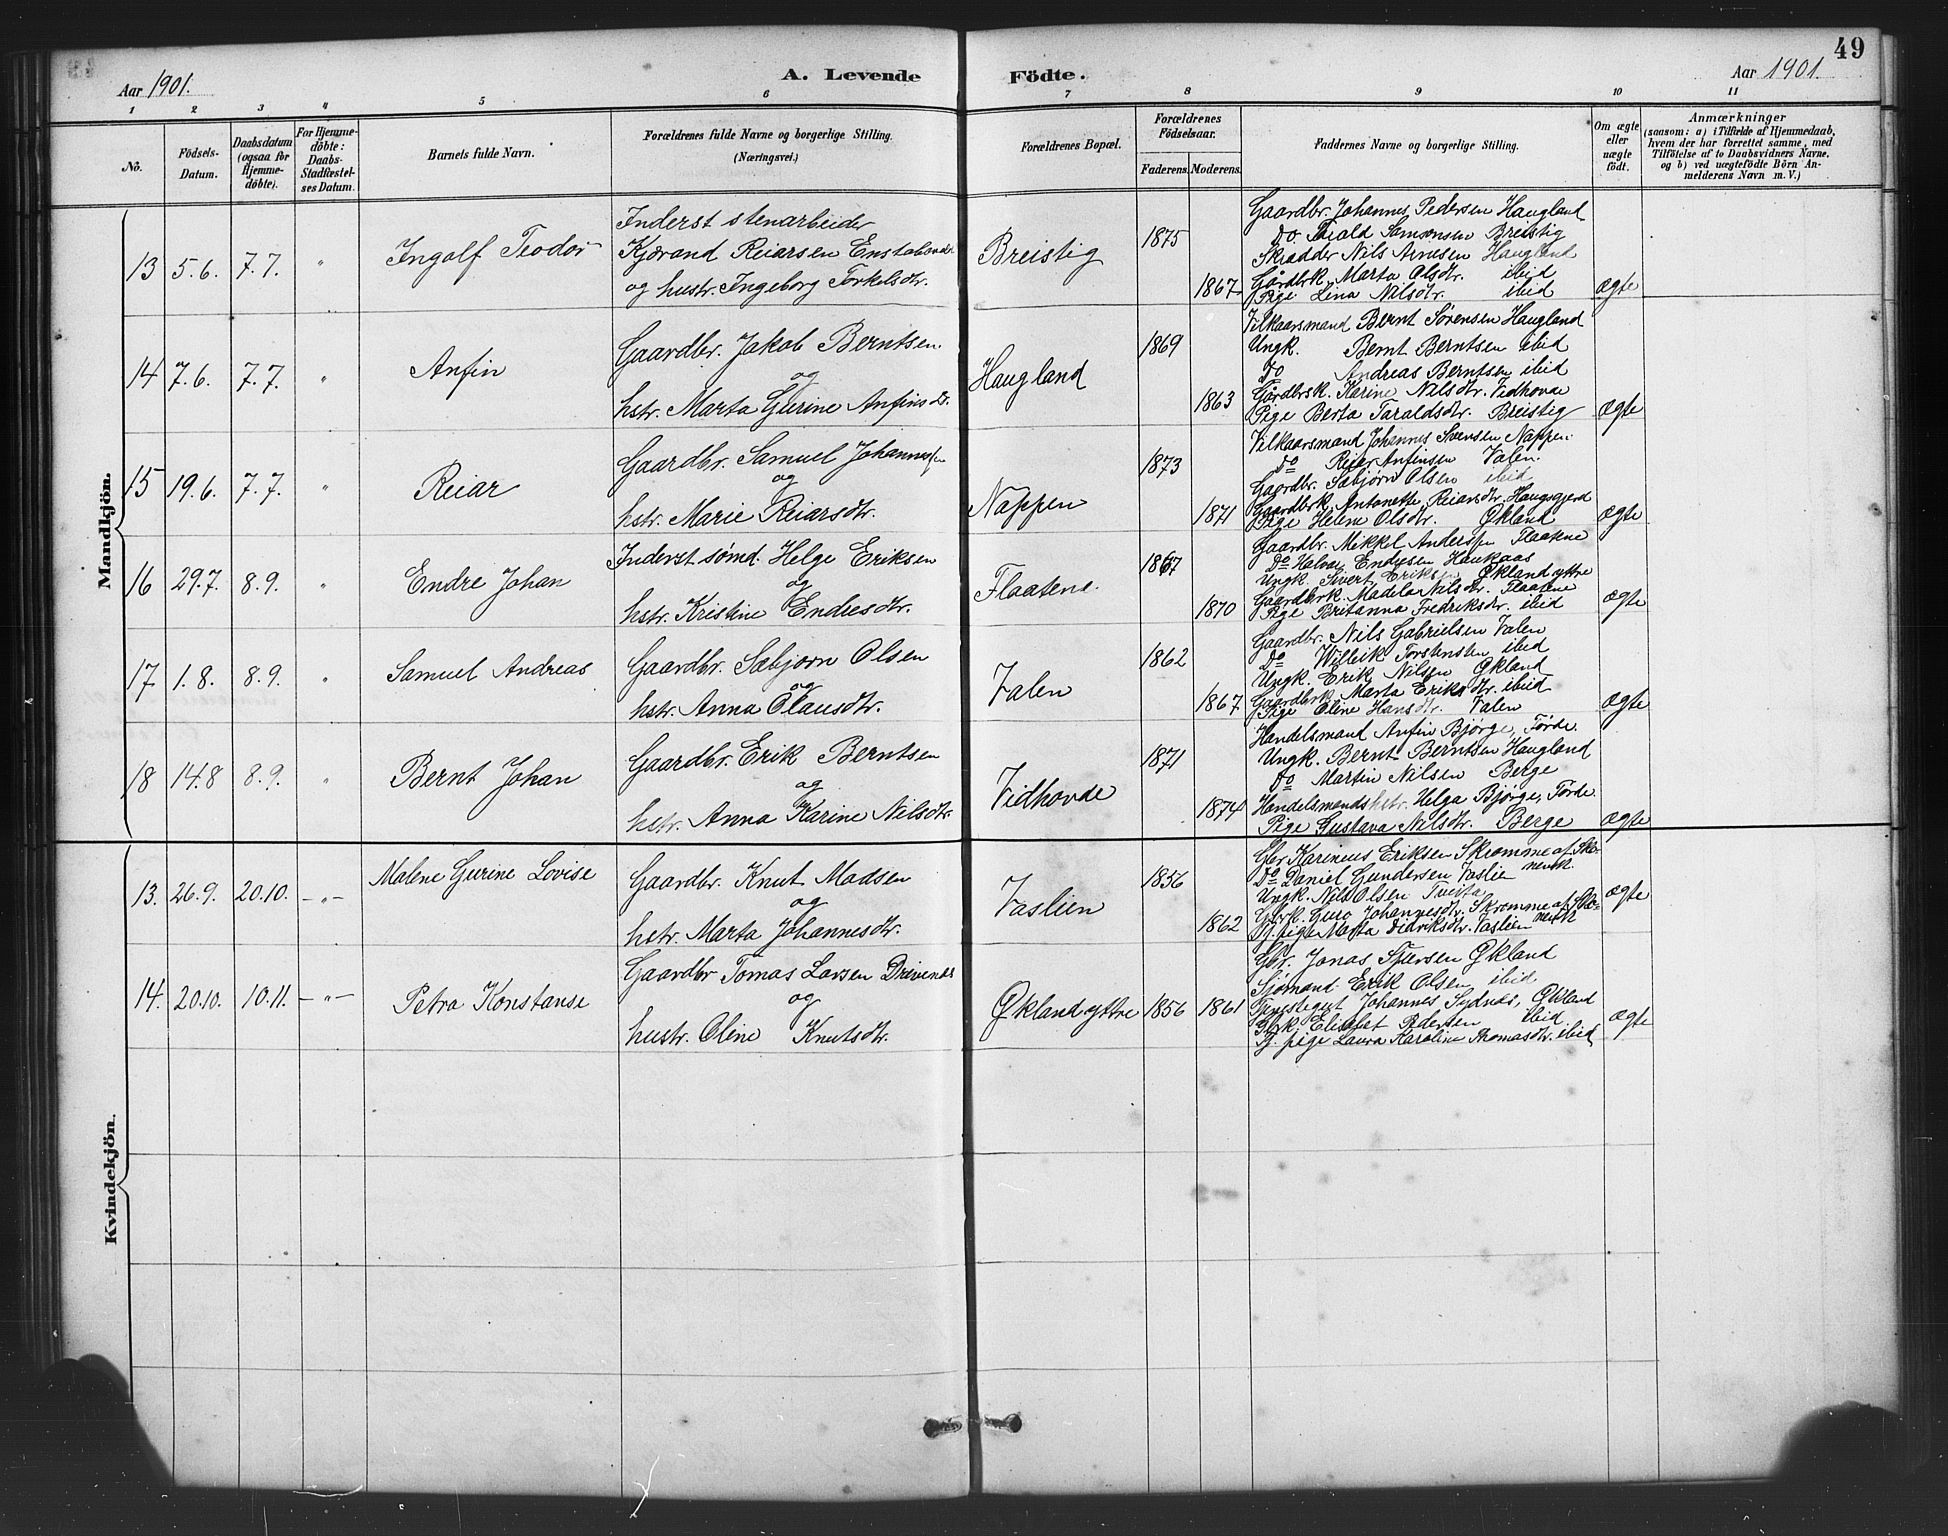 49
Aar 1901.
A. Levende Födte.
Aar 1901.
1 2 3 4 5 6 7 8 9 10 11
No.
Födsels-Datum.
Daabsdatum (ogsaa for Hjemme-döbte).
For Hjemme-döbte: Daabs-Stadfæstel-ses Datum.
Barnets fulde Navn.
Forældrenes fulde Navne og borgerlige Stilling.
(Næringsvei.)
Forældrenes Bopæl.
Forældrenes Födselsaar.
Faderens. Moderens.
Faddernes Navne og borgerlige Stilling.
Om ægte eller uægte födt.
Anmærkninger
(saasom: a) i Tilfælde af Hjemmedaab,
hvem der har forrettet samme, med
Tilföielse af to Daabsvidners Navne,
og b) ved uegtefödte Börn An-
melderens Navn m. V.)
Mandkjön.
13 5.6. 7.7. " Ingolf Teodor
Inderst stenarbeider
Kjærand Reiarsen
og hustr. Ingeborg Torkelsdtr.
Breistig 1875 1867
Gaardbr. Johannes Pedersen Haugland
Do Samsonsen Breistig
Skrædder Nils Arnesen Haugland
Gårdbrk. Marta Olsdtr. ibid
Pige Lina Nilsdtr. ibid
Ægte
14 7.6. 7.7. " Anfin
Gaardbr. Jakob Berntsen
og
hstr. Marta Gurine Anfinsd.
Haugland 1869 1863
Vilkaarsmand Bernt Sørensen Haugland
Ungk. Bernt Berntsen ibid
Do Andreas Berntsen ibid
Gårdbrsk. Karine Nilsdtr. Vidhovde
Pige Berta Taraldsdtr. Breistig
Ægte
15 19.6. 7.7. " Reiar
Gaardbr. Samuel Johannessen
og
hstr. Marie Reiarsdtr.
Nappen 1873 1871
Vilkaarsmand Johannes Svensen Nappen
Do Reier Anfinsen Valen.
Gaardbr. Sæbjørn Olsen ibid
Gaardbrk. Antonette Reiarsdtr. Haugsgjerd
Pige Helene Olsdtr. Økland
Ægte
16 29.7. 8.9. " Endre Johan
Inderst sømd. Helge Eriksen
og
hstr. Kristine Endresdtr.
Flaatene. 1867 1870
Gaardbr. Mikkel Anderssen Flaatene
Do Halvor Endresen Haukaas
Ungk. Sivert Eriksen Økland yttre
Gaardbrk. Madela Nilsdtr. Flaatene
Pige Britanna Fredriksdtr. ibid
Ægte
17. 1.8. 8.9. " Samuel Andreas
Gaardbr. Sæbjørn Olsen
og
hstr. Anna Olausdtr.
Valen 1862 1867
Gaardbr. Nils Gabrielsen Valen
Do Willeik Torstensen ibid
Ungk. Erik Nilsen Økland
Gaardbrk. Marta Eriksdtr. ibid
Pige Oline Hansdtr. Valen
Ægte
18 14.8 8.9. " Bernt Johan
Gaardbr. Erik Berntsen
og
hstr. Anna Karine Nilsdtr.
Vidhovde 1871 1874
Handelsmand Anfin Bjørge, Førde.
Ungk. Bernt Berntsen Haugland
Do Martin Nilsen Berge
Handelsmandshstr. Helga Bjørge, Førde.
Pige Gustava Nilsdtr. Berge
Ægte
Kvindekjön.
13. 26.9. 20.10. —"— Malene Gurine Lovise
Gaardbr. Knut Madsen
og
hstr. Marta Johannesdtr.
Vaslien 1856 1862
Gbr. Karinius Eriksen Skromme af Skonevik.
Do Daniel Gundersen Vaslie
Ungk. Nils Olsen Tveita
Gbrk. Guro Johannesdtr. Skromme af Skonevik
Tj. pige Marta Didriksdtr. Vaslien
Ægte
14. 20.10. 10.11. —"— Petra Konstanse
Gaardbr Tomas Larsen Drivenes
og
hustr. Oline Knutsdtr.
Økland yttre 1856 1861
Gbr. Jonas Sjursen Økland
Sjømand. Erik Olsen ibid
Johannes Sydnes, Økland
Gbrk. Elisabet Pedersen ibid.
Tj. pige Laura Karoline Thomasdtr. ibid
Ægte